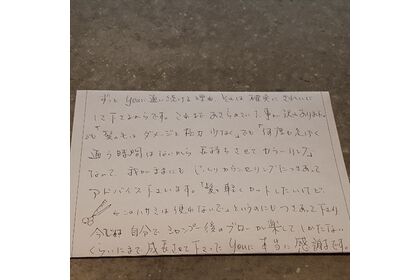 ずっとyouに通い続ける理由、それは確実にきれいに
して下さるからです。これまであきらめている事が沢山ありました。
「髪の毛のダメージを極力少なく」でも「何度も足しげく
通う時間はないから長持ちさせてカラーリング」
なんて、我がままにもじっくりカウンセリングにつきあって
アドバイス下さいます。「髪を軽くカットしたいけど、
このハサミは使わないで」というのにもつきあって下さり
今では自分でシャンプー後のブローが楽しくてしかたない
くらいにまで成長させて下さったyouに本当に感謝です。